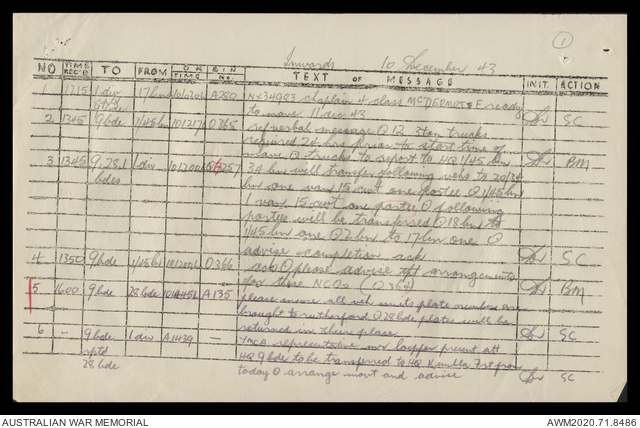 Inwards 10 December 43
1
NO TIME REC'D TO FROM ORIGIN TIME No. TEXT OF MESSAGE INIT. ACTION
1 1215 1 div 17 bn A280 NX34983 chaplain 4 class McDERMOTT E ready
to move 11 dec 43
2 1345 9 bde 1/45 bn 101217 O365 ref verbal message O 12 3ton trucks SC
required 24 hrs prior to start time of
move O trucks to report to HQ 1/45 bn
3 1345 9, 28, 1 bdes 1 div 101200 A257 3A bn will transfer following vehs to 20/34 BM
bn one van 15 cwt one portee O 1/45 bn
1 van 15 cwt one portee O following
portees will be transferred O 18 bn to
1/45 bn one O 2 bn to 17 bn one O
advise completion ack
4 1350 9 bde 1/45 bn O366 ack O please advise tpt arrangements SC
for three NCOs (O 364)
5 1600 9 bde 28 bde A135 please ensure all veh unit plate numbers are BM
brought to rutherford O 28 bde plates will be
returned in their place
6 – 9 bde rptd 28 bde 1 div A1439 — YMCA representative mr present att SC
HQ 9 bde to be transferred to HQ Kembla Fort from
today O arrange movt and advise SC
AUSTRALIAN WAR MEMORIAL
AWM2020.71.8486